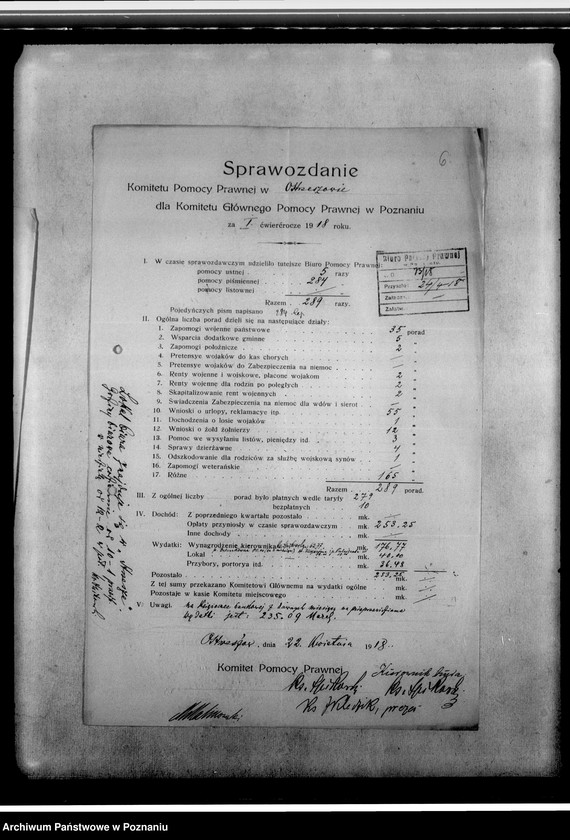 6.
Sprawozdanie
Komitetu Pomocy Prawnej w
dla Komitetu Głównego Pomocy Prawnej w Poznaniu
za I ćwierćrocze 1918 roku.
Biuro Pomocy Prawnej
73/18
Przysłano: 24/4-18
Załatw.
I. W czasie sprawozdawczym udzieliło tutejsze Biuro Pomocy Prawnej:
pomocy ustnej 5 razy
pomocy piśmiennej 284 "
pomocy listownej — "
Razem 289 razy.
Pojedyńczych pism napisano 284
II. Ogólna liczba porad dzieli się na następujące działy:
1. Zapomogi wojenne państwowe 35 porad
2. Wsparcia dodatkowe gminne 5 "
3. Zapomogi położnicze 2 "
4. Pretensye wojaków do kas chorych — "
5. Pretensye wojaków do Zabezpieczenia na niemoc — "
6. Renty wojenne i wojskowe, płacone wojakom 2 "
7. Renty wojenne dla rodzin po poległych 2 "
8. Skapitalizowanie rent wojennych 2 "
9. Świadczenia Zabezpieczenia na niemoc dla wdów i sierot — "
10. Wnioski o urlopy, reklamacye itp. 55 "
11. Dochodzenia o losie wojaków 1 "
12. Wnioski o żołd żołnierzy 12 "
13. Pomoc we wysyłaniu listów, pieniędzy itd. 3 "
14. Sprawy dzierżawne 4 "
15. Odszkodowanie dla rodziców za służbę wojskową synów 1 "
16. Zapomogi weterańskie — "
17. Różne 165 "
Razem 289 porad.
III. Z ogólnej liczby porad było płatnych wedle taryfy 279
bezpłatnych 10
IV. Dochód: Z poprzedniego kwartału pozostało mk. —
Opłaty przyniosły w czasie sprawozdawczym mk. 253.25
Inne dochody mk. —
Wydatki: Wynagrodzenie kierownika mk. 176.77
Lokal mk. 40.00
Przybory, portorya itd. mk. 36.48
253.25
Pozostało mk. —
Z tej sumy przekazano Komitetowi Głównemu na wydatki ogólne mk. —
Pozostaje w kasie Komitetu miejscowego mk. —
V. Uwagi.
235.09
, dnia 22 Kwietnia 1918.
Komitet Pomocy Prawnej
Archiwum Państwowe w Poznaniu